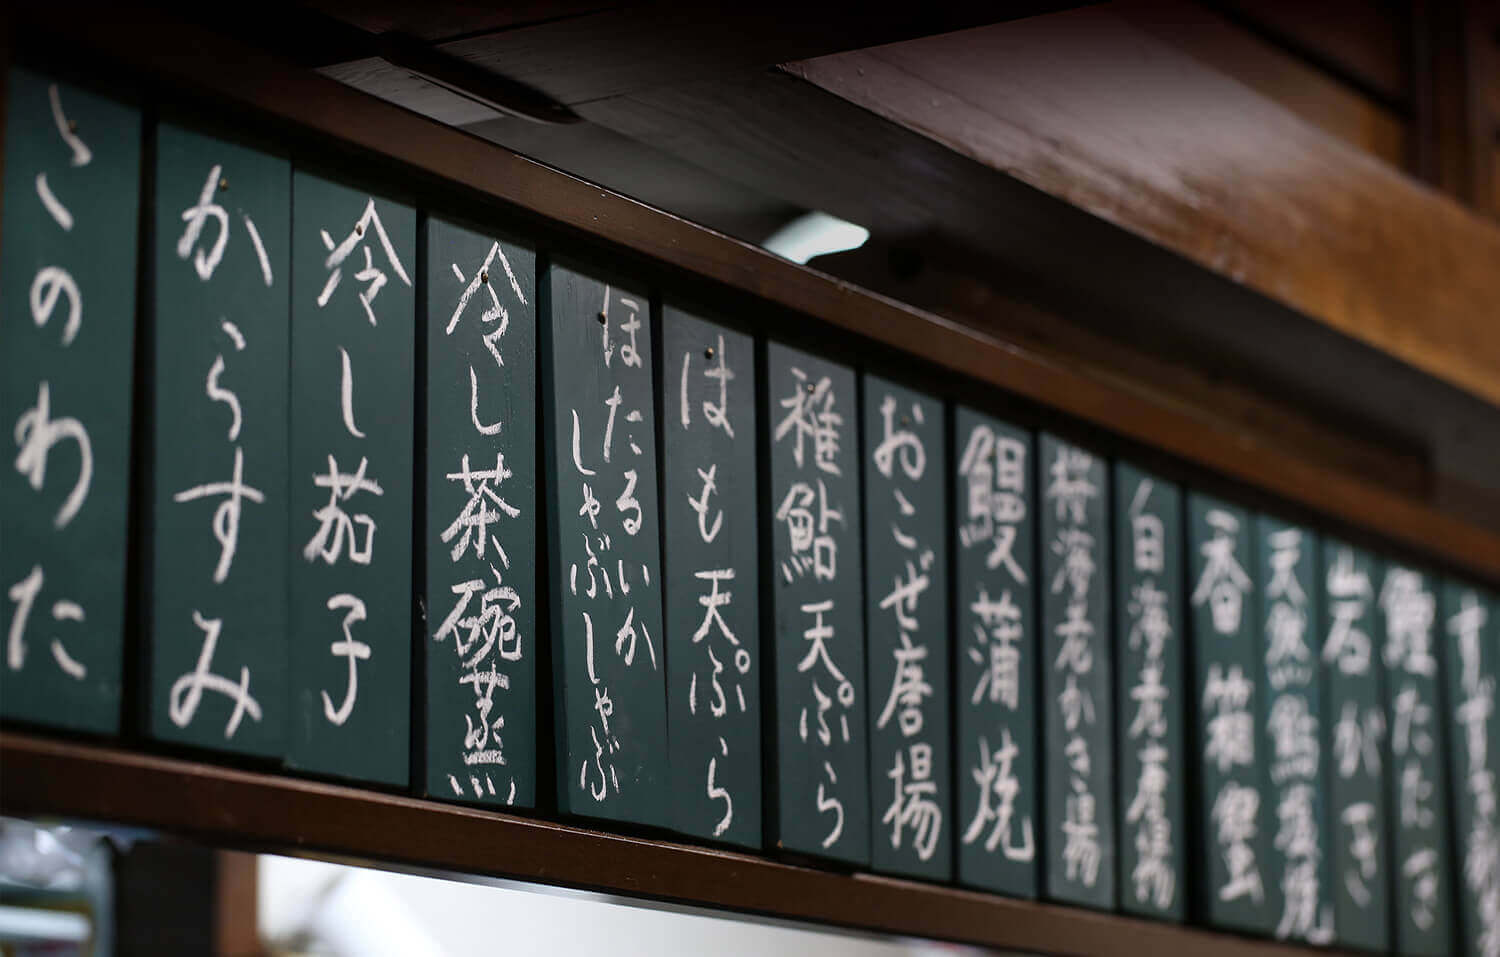 すずき
鰹たたき
岩がき
天然鮎塩焼
香箱蟹
白海老唐揚
桜海老かき揚
鰻蒲焼
おこぜ唐揚
稚鮎天ぷら
はも天ぷら
ほたるいか
しゃぶしゃぶ
冷し茶碗蒸
冷し茄子
からすみ
このわた